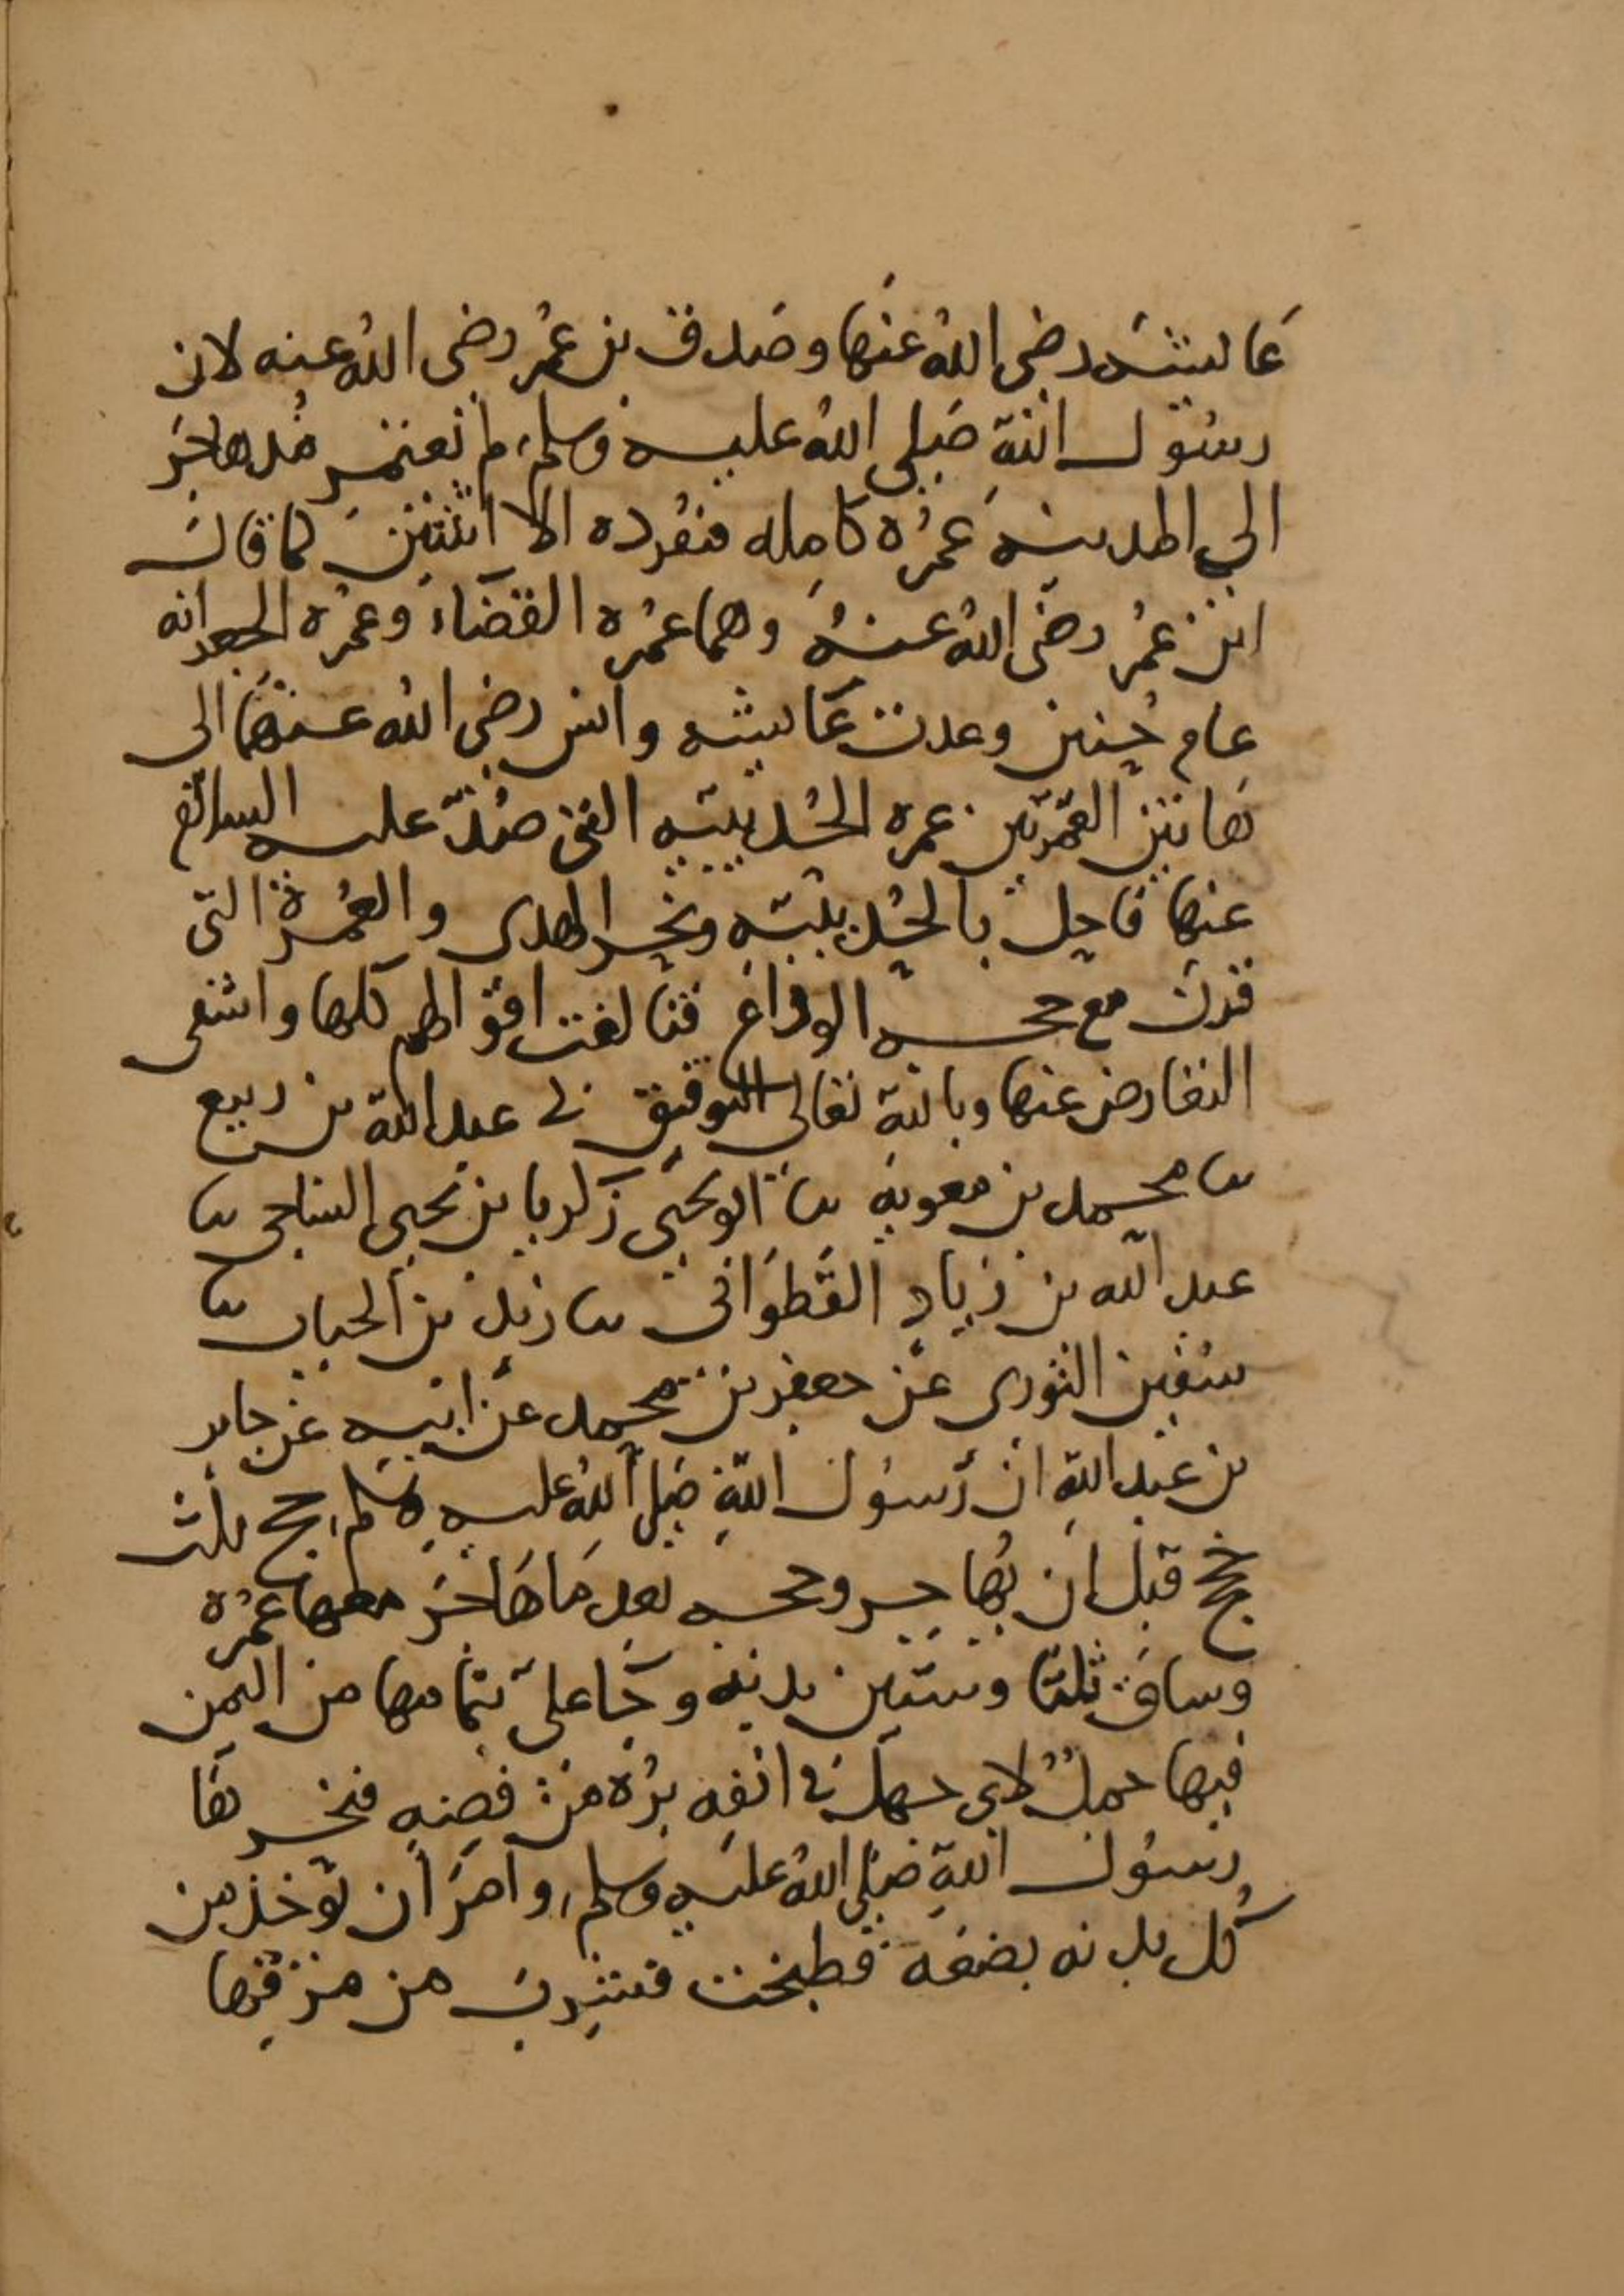 عائشه رضي الله عنها وصدق بن عمر رضي الله عنه لان
رسول الله صلى الله عليه وسلم لم يعتمر مذ هاجر
الى المدينه عمره كامله مفرده الا اثنتين كما قال
ابن عمر رضي الله عنه وهما عمره القضاء وعمره الجعرانه
عام حنين وعدت عائشه وانس رضي الله عنهما الى
هاتين العمرتين عمره الحديبيه التي صد عليه السلام
عنها فاحل بالحديبيه ونحر الهدى والعمرة التى
قرن مع حجه الوداع فتالفت اقوالهم كلها وانتفى
التعارض عنها وبالله تعالى التوفيق نا عبد الله بن ربيع
نا محمد بن معويه نا ابو يحيى زكريا بن يحيى الساجى نا
عبد الله بن زياد القطواني نا زيد بن الحباب نا
سفين الثورى عن جعفر بن محمد عن ابيه عن جابر
بن عبد الله ان رسول الله صلى الله عليه وسلم حج ثلث
حجج قبل ان يهاجر وحجه بعد ما هاجر معها عمره
وساق ثلثا وستين بدنه وجا على بتمامها من اليمن
فيها جمل لابى جهل فى انفه بره من فضه فنحرها
رسول الله صلى الله عليه وسلم وامر ان توخذ من
كل بدنه بضعه فطبخت فشرب من مرقها